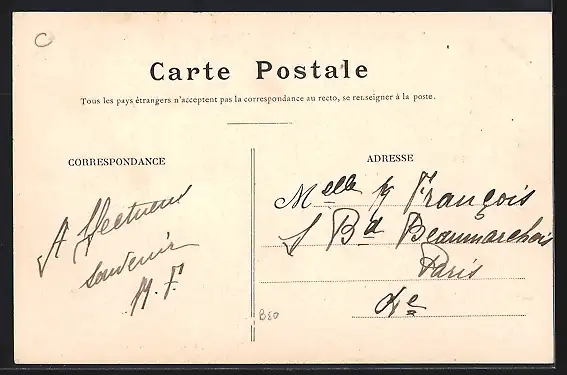 C
Carte Postale
Tous les pays étrangers n'acceptent pas la correspondance au recto, se renseigner à la poste.
CORRESPONDANCE
Affectueux
souvenir
M. F.
ADRESSE
Melle M François
Bd Beaumarchais
Paris
BEO